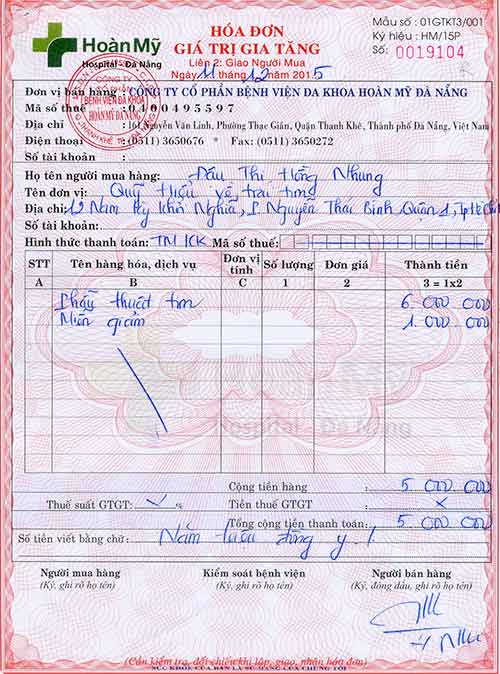 HoànMỹ
Hospital - Đà Nẵng
HÓA ĐƠN
GIÁ TRỊ GIA TĂNG
Liên 2: Giao Người Mua
Ngày 11 tháng 12 năm 2015
Mẫu số : 01GTKT3/001
Ký hiệu : HM/15P
Số: 0019104
CÔNG TY
BỆNH VIỆN ĐA KHOA
HOÀN MỸ ĐÀ NẴNG
Đơn vị bán hàng : CÔNG TY CỔ PHẦN BỆNH VIỆN ĐA KHOA HOÀN MỸ ĐÀ NẴNG
Mã số thuế : 0400495597
Địa chỉ : 161 Nguyễn Văn Linh, Phường Thạc Gián, Quận Thanh Khê, Thành phố Đà Nẵng, Việt Nam
Điện thoại : (0511) 3650676 * Fax: (0511) 3650272
Số tài khoản :
Họ tên người mua hàng: Đậu Thị Hồng Nhung
Tên đơn vị: Quỹ thiện về trái tim
Địa chỉ: Nam Kỳ Khởi Nghĩa, P. Nguyễn Thái Bình Quận 1, Tp Hồ Chí
Số tài khoản:
Hình thức thanh toán: TM/CK Mã số thuế:
STT Tên hàng hóa, dịch vụ Đơn vị tính Số lượng Đơn giá Thành tiền
A B C 1 2 3 = 1x2
Phẫu thuật tim 6 000 000
Miễn giảm 1 000 000
Hospital - Đà Nẵng
Cộng tiền hàng 5 000 000
Thuế suất GTGT: % Tiền thuế GTGT x
Tổng cộng tiền thanh toán: 5 000 000
Số tiền viết bằng chữ: Năm triệu đồng y
Người mua hàng Kiểm soát bệnh viện Người bán hàng
(Ký, ghi rõ họ tên) (Ký, ghi rõ họ tên) (Ký, đóng dấu, ghi rõ họ tên)
(Cần kiểm tra, đối chiếu khi lập, giao, nhận hóa đơn)
SỨC KHỎE CỦA BẠN LÀ SỨ MẠNG CỦA CHÚNG TÔI